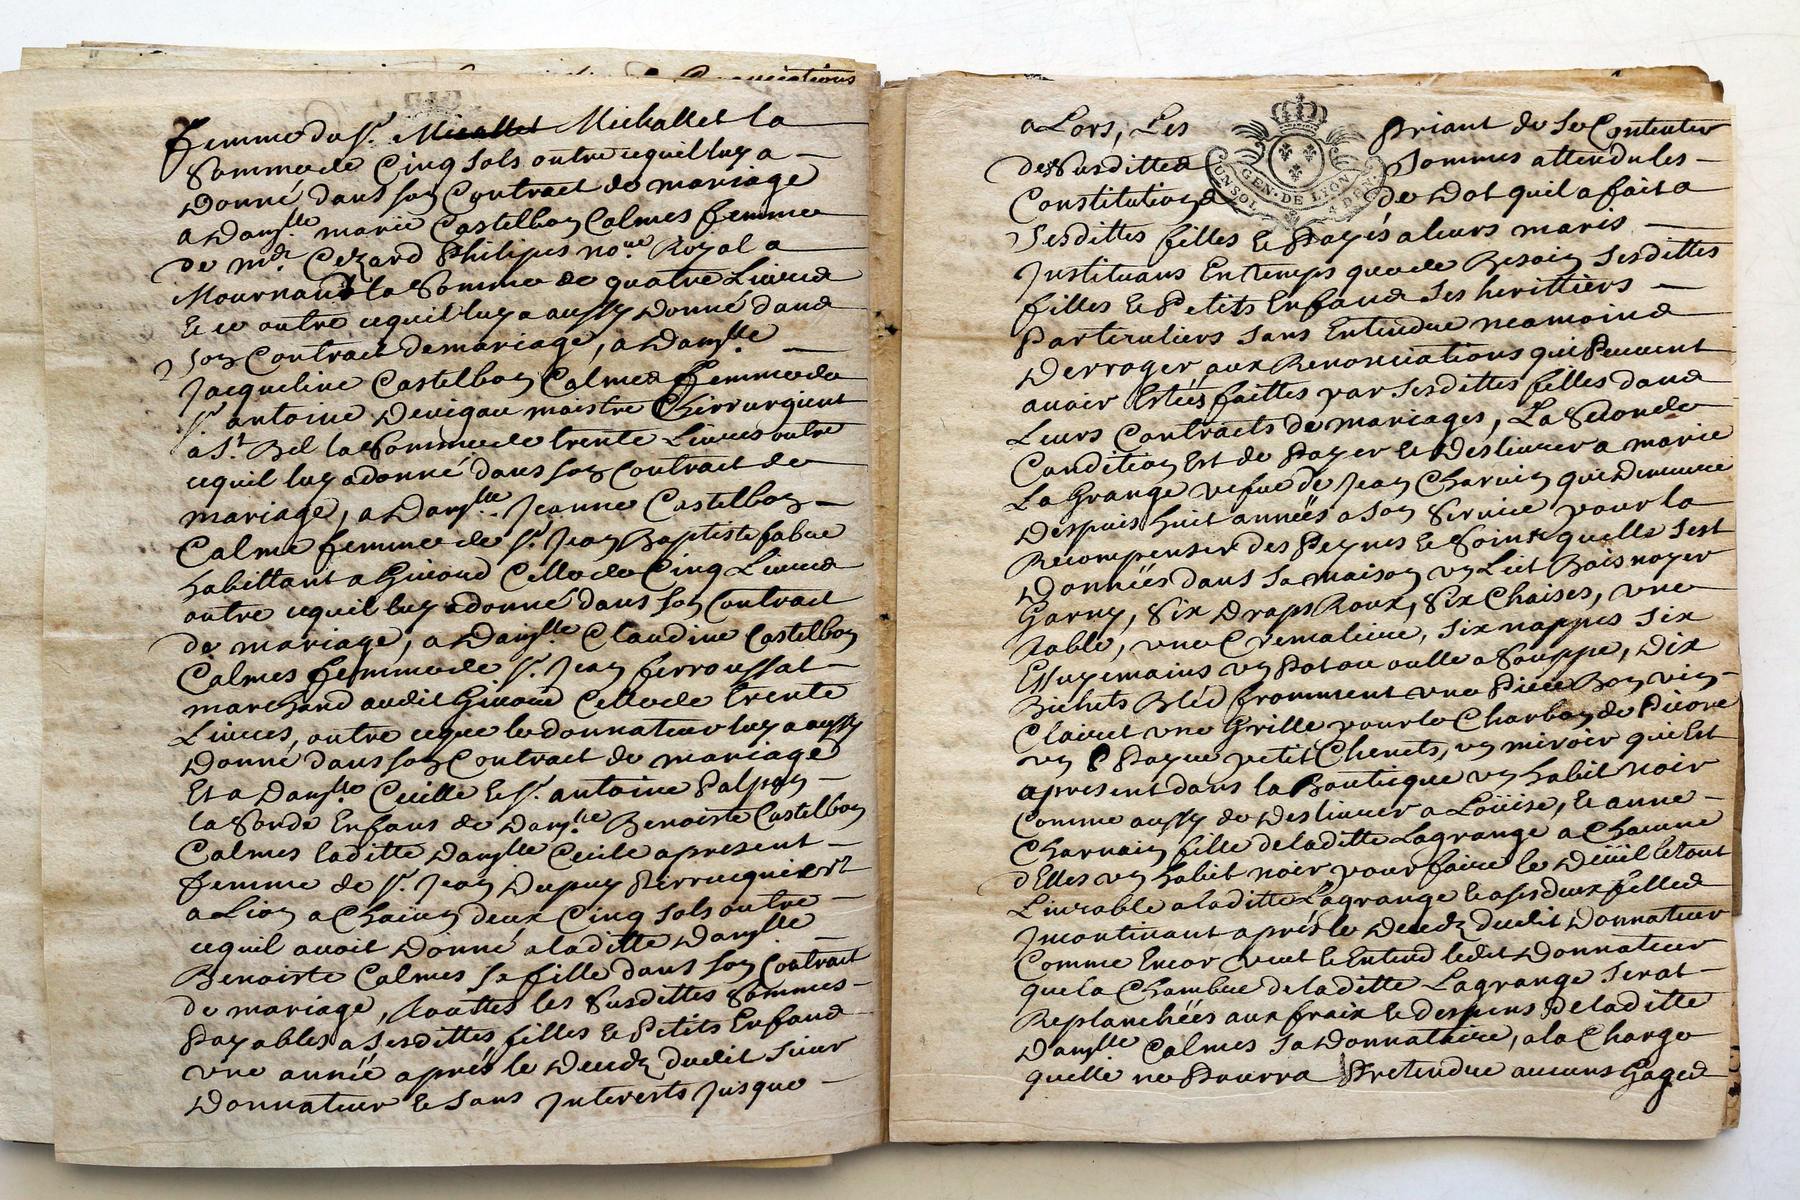 Femme du Sr. Micallet Michallet la
Somme de Cinq sols outre cequil luy a
Donné dans son Contract de mariage
a Damlle marie Castelbon Calmes femme
de mr. Cezard Philipes nore Royal a
Mournand la Somme de quatre Livres
Et ce outre cequil luy a aussy Donné dans
son Contract demariage, a Damlle
Jacqueline Castelbon Calmes femme de
Sr antoine Devigau maistre Chirrurgient
a St. Bel la Somme de trente Livres outre
cequil luy adonné dans son Contract de
mariage, a Damlle Jeanne Castelbon
Calme femme de Sr. Jean Baptiste fabue
habittant a Givord Celle de Cinq Livres
outre cequil luy adonné dans son Contract
de mariage, a Damlle Claudine Castelbon
Calmes femme de Sr. Jean ferroussat
marchand audit Givord Celle de trente
Livres, outre ceque le donnateur luy a aussy
Donné dans son Contract de mariage
Et a Damlle Cecille & Sr. antoine
la Sonde Enfans de Damlle Benoiste Castelbon
Calmes laditte Damlle Cecile apresent
femme de Sr. Jean Dupuy Perruquiert
a Lion a Chaiun deux Cinq sols outre
cequil avoit Donné a laditte Damlle
Benoiste Calmes sa fille dans son Contract
de mariage, touttes les Susdittes Sommes
Payables a Sesdittes filles & Petits Enfans
une année aprés le Decedz dudit sieur
Donnateur & sans Interests Jusque
aLors, Les Priant de Se Contenter
desSusdittes Sommes attendu les
Constitutions de Dot quil a fait a
Sesdittes filles & Payés aleurs maris
Instituans En temps que de Besoin Sesdittes
filles & Petits Enfans Ses herittiers
Particuliers sans Entendre neamoins
Derroger aux Renonciations qui Peuvent
avoir Estées faittes par Sesdittes filles dans
Leurs Contracts de mariages, La Seconde
Condition Est de Payer & Deslivrer a marie
La Grange vefue de Jean Charvin qui Demeure
Despuis huit années a son Service pour la
Recompenser des Peynes & Soins quelle sest
Donnëes dans sa maison un Lict Bois noyer
Garny, Six Draps Roux, Six Chaises, une
table, une Cremaliere, six nappes six
Essuyemains un Pot ou oulle a Souppe, Dix
Bichets Bled fromment une Piece Bon vin
Clairet une Grille pour le Charbon de Pierre
un Payre petit Chenets, un miroir qui Est
apresent dans la Bouticque un habit noir
Comme aussy de Deslivrer a Loüise, & anne
Charvain fille de laditte Lagrange a Chacune
dElles un habit noir pour faire le Deüil le tout
Livrable a laditte Lagrange & a ses deux filles
Incontinant aprés le Decedz dudit Donnateur
Comme Encor veut & Entend ledit Donnateur
que la Chambre de laditte Lagrange serat
Replanchëes aux fraix & despens de laditte
Damlle Calmes sa Donnataire, ala Charge
quelle ne Pourra Pretendre aucuns Gages
GEN. DE LYON
UN SOL 4 DEN.